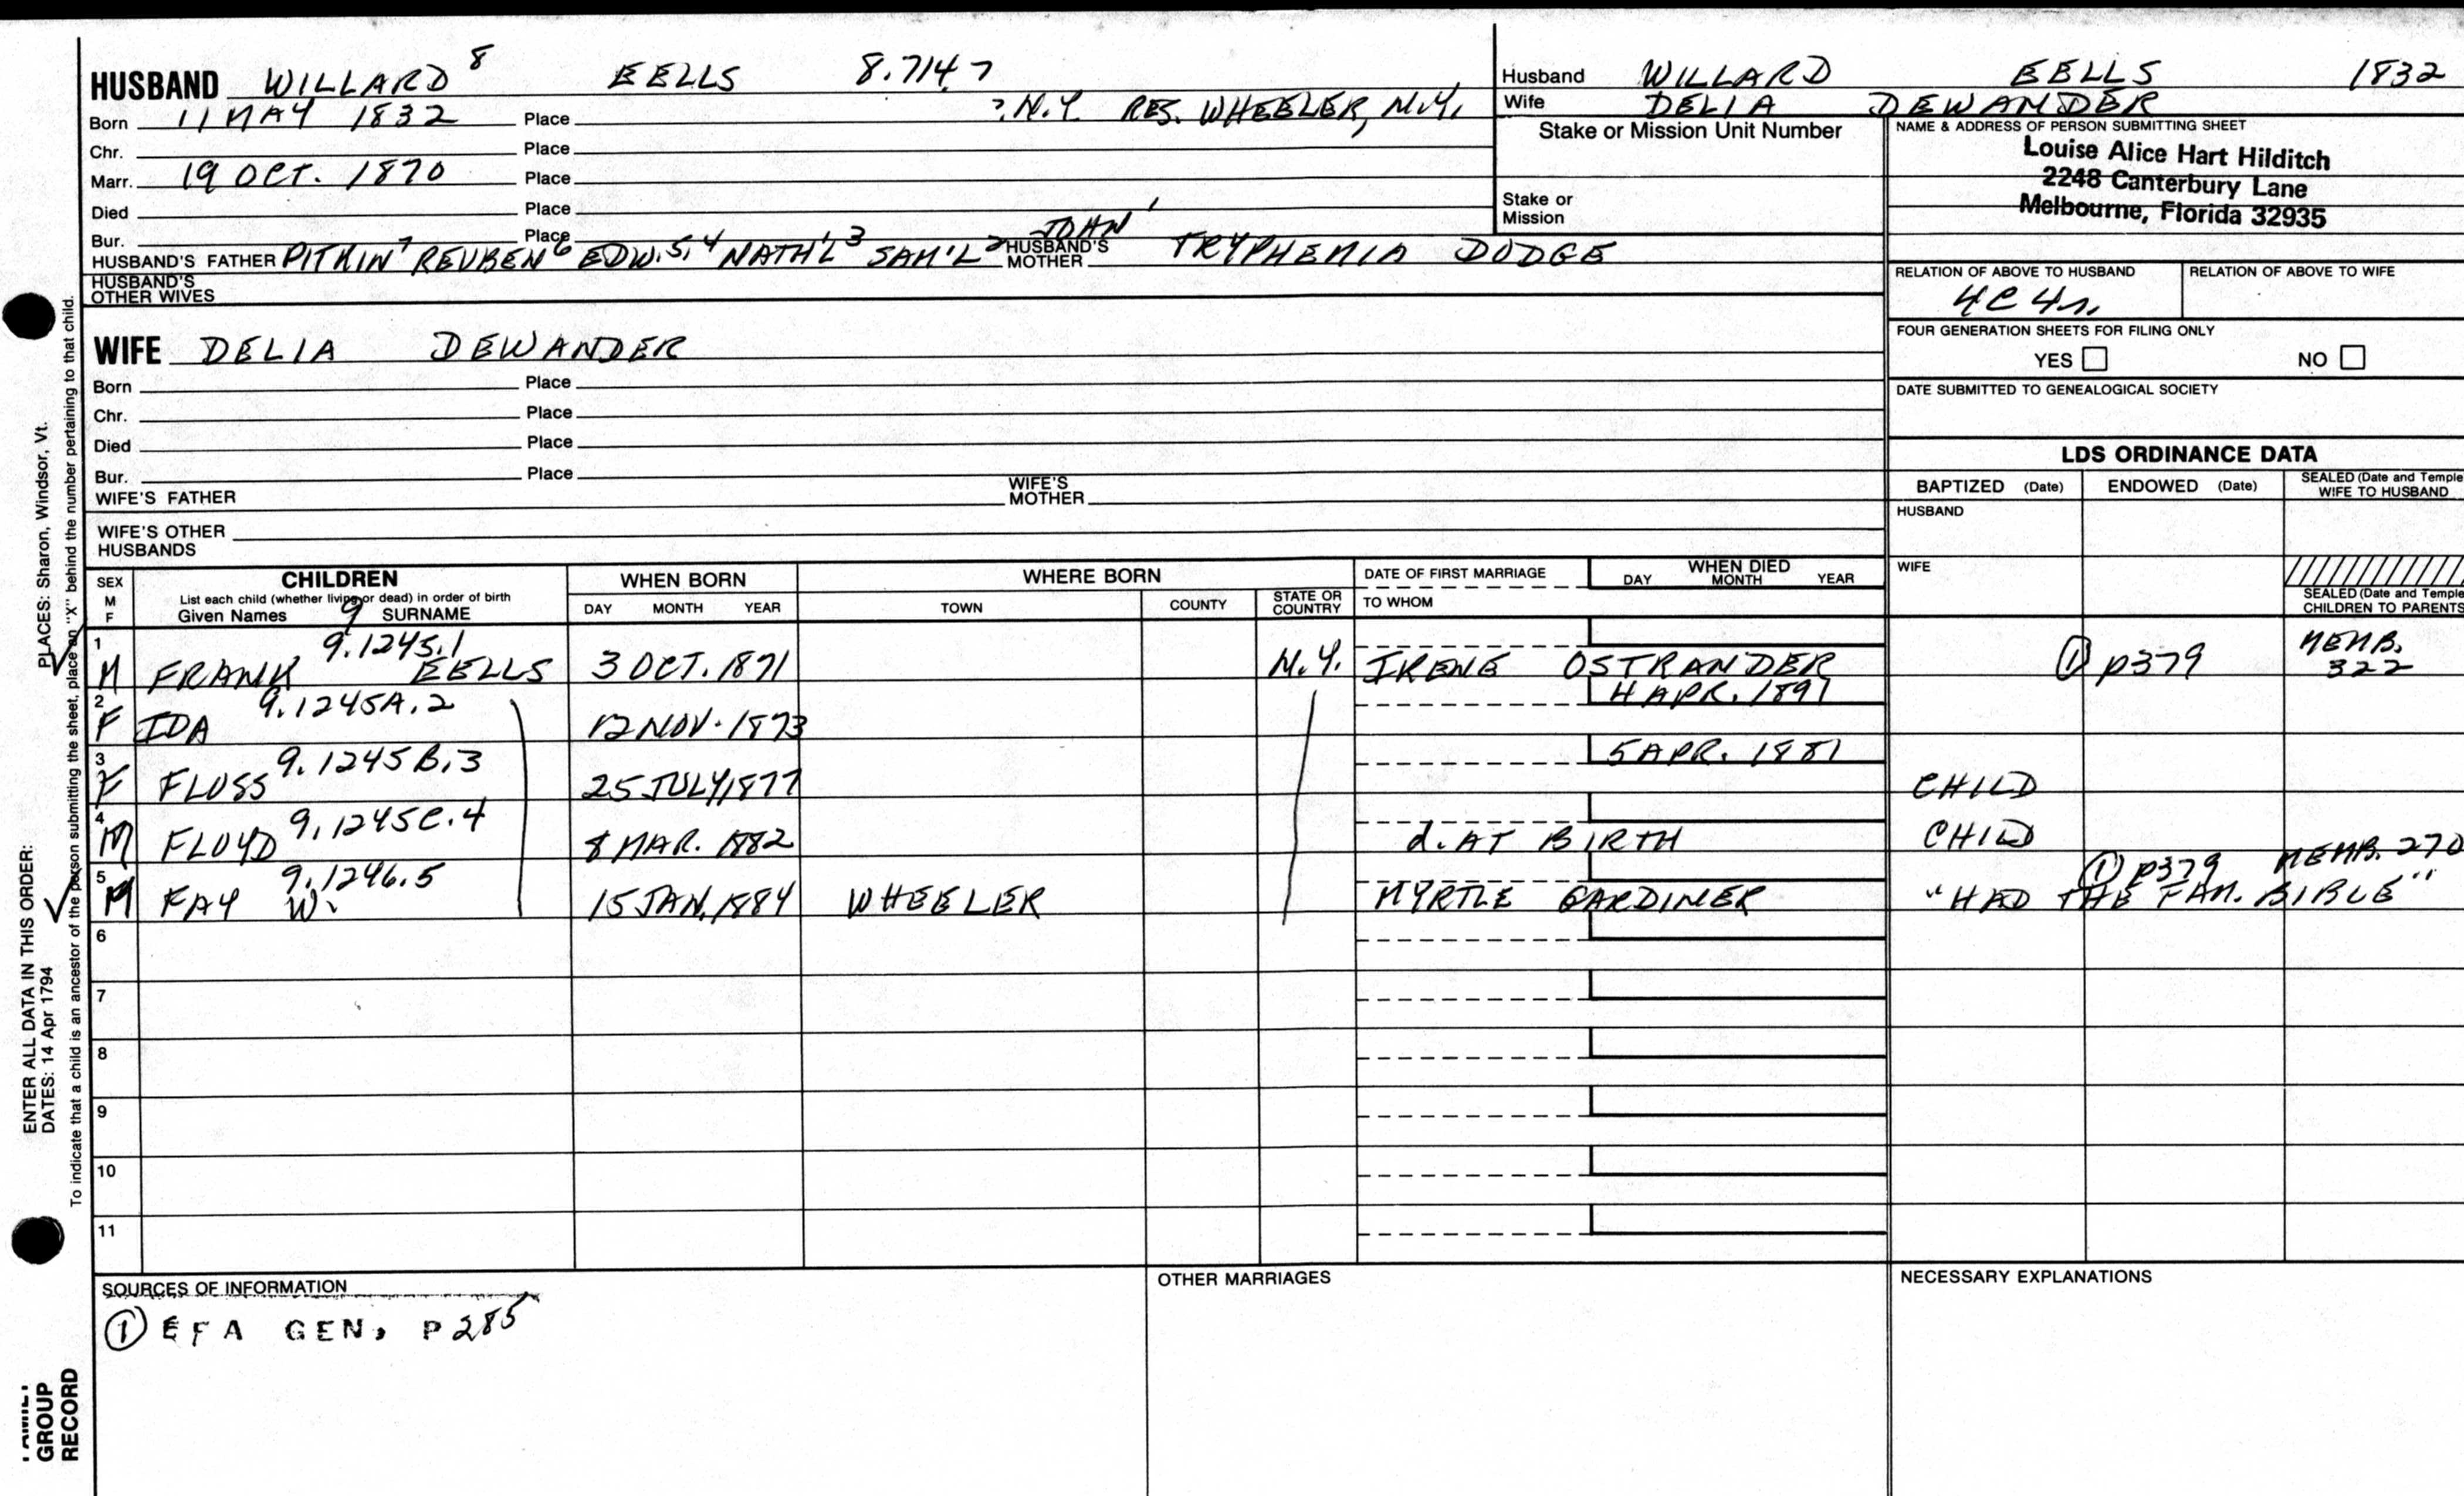 HUSBAND WILLARD 8 EELLS 8.714.7
Born 11 MAY 1832 Place ? N.Y. RES. WHEELER, N.Y.
Chr. Place
Marr. 19 OCT. 1870 Place
Died Place
Bur. Place
HUSBAND'S FATHER PITKIN 7 REUBEN 6 EDW. 5, 4 NATH'L 3 SAM'L 2 JOHN 1 HUSBAND'S MOTHER TRYPHENIA DODGE
HUSBAND'S OTHER WIVES
Husband WILLARD EELLS 1832
Wife DELIA DEWANDER
Stake or Mission Unit Number
Stake or Mission
NAME & ADDRESS OF PERSON SUBMITTING SHEET
Louise Alice Hart Hilditch
2248 Canterbury Lane
Melbourne, Florida 32935
RELATION OF ABOVE TO HUSBAND RELATION OF ABOVE TO WIFE
4C 4r.
FOUR GENERATION SHEETS FOR FILING ONLY
YES NO
DATE SUBMITTED TO GENEALOGICAL SOCIETY
WIFE DELIA DEWANDER
Born Place
Chr. Place
Died Place
Bur. Place
WIFE'S FATHER WIFE'S MOTHER
WIFE'S OTHER HUSBANDS
LDS ORDINANCE DATA
BAPTIZED (Date) ENDOWED (Date) SEALED (Date and Temple
WIFE TO HUSBAND
HUSBAND
WIFE
SEALED (Date and Temple
CHILDREN TO PARENTS
SEX M F CHILDREN WHEN BORN WHERE BORN DATE OF FIRST MARRIAGE WHEN DIED
List each child (whether living or dead) in order of birth
Given Names 9 SURNAME DAY MONTH YEAR TOWN COUNTY STATE OR COUNTRY TO WHOM DAY MONTH YEAR
1 M FRANK 9.1245.1 EELLS 3 OCT. 1871 N.Y. IRENE OSTRANDER ① p379 MEMB. 322
2 F IDA 9.1245A.2 12 NOV. 1873 4 APR. 1891
3 F FLOSS 9.1245B.3 25 JULY 1877 5 APR. 1881 CHILD
4 M FLOYD 9.1245C.4 8 MAR. 1882 d. AT BIRTH CHILD
5 M FAY W. 9.1246.5 15 JAN. 1884 WHEELER MYRTLE GARDINER ① p379 MEMB. 270
"HAD THE FAM. BIBLE"
6
7
8
9
10
11
SOURCES OF INFORMATION
① EFA GEN, P 285
OTHER MARRIAGES
NECESSARY EXPLANATIONS
PLACES: Sharon, Windsor, Vt.
ENTER ALL DATA IN THIS ORDER:
DATES: 14 Apr 1794
To indicate that a child is an ancestor of the person submitting the sheet, place an "X" behind the number pertaining to that child.
FAMILY
GROUP
RECORD